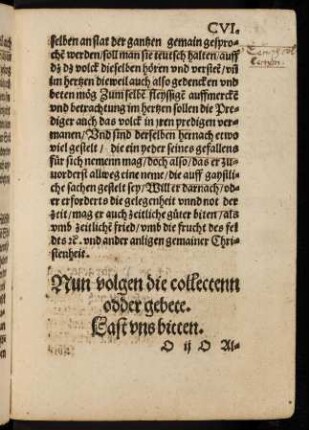 CVI.
selben anstat der gantzen gemain gespro-
chē werden/soll man sie teutsch halten/auff
dz̄ dz̄ volck dieselben hören vnd verstee/ vñ
im hertzen dieweil auch also gedencken vnd
beten mög Zum selbē fleyssigē auffmerckē
vnd betrachtung im hertzen sollen die Pre-
diger auch das volck in jren predigen ver-
manen/ Vnd sind derselben hernach etwo
wiel gestelt/ die ein yeder seines gefallens
für sich nemenn mag/doch also/das er zů-
uorderst allweg eine neme/ die auff gaystli-
che sachen gestelt sey/ Will er darnach/od-
er erforderts die gelegenheit vnnd not der
zeit/mag er auch zeitliche güter biten/ als
vmb zeitlichē fried/vmb die frucht des felds
ꝛc. vnd ander anligen gemainer Chri-
stenheit.
Nun volgen die collectenn
odder gebete.
Last vns bitten.
O ij O Al-